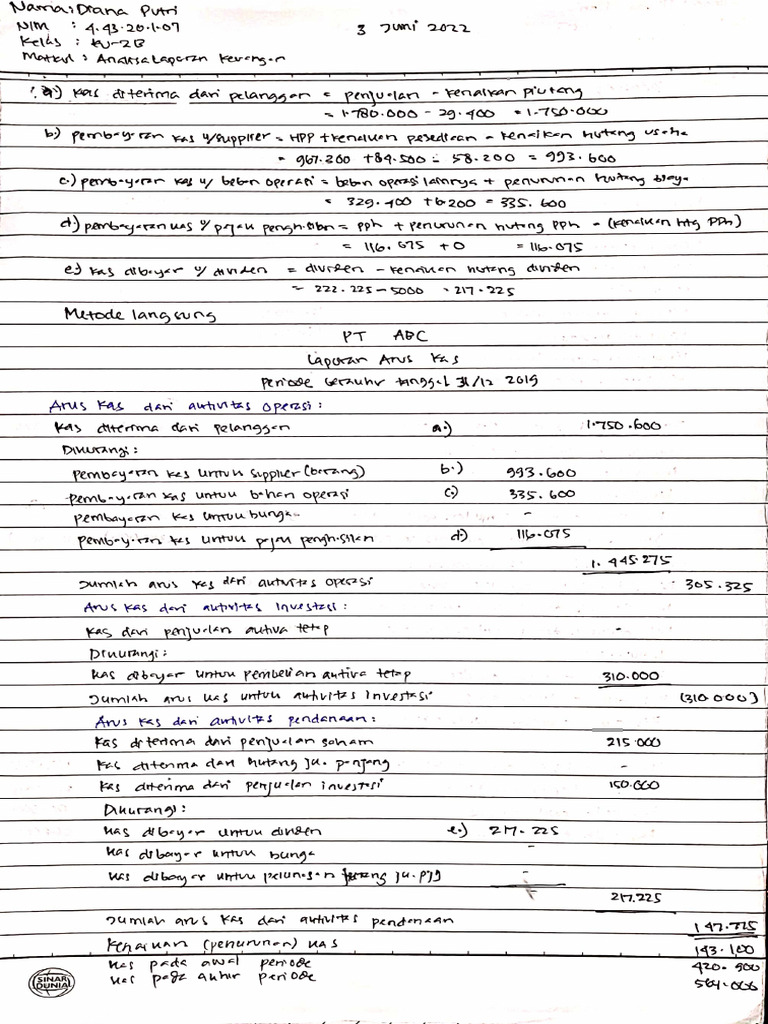 Nama : Diana Putri
NIM : 4.43.20.1.07
3 Juni 2022
Kelas : KU-2B
Matkul : Analisa Laporan Keuangan
1. a) Kas diterima dari pelanggan = penjualan - kenaikan piutang
= 1.780.000 - 29.400 = 1.750.000
b) pembayaran kas u/ supplier = HPP + kenaikan persediaan - kenaikan hutang usaha
= 967.200 + 84.500 - 58.200 = 993.600
c.) pembayaran kas u/ beban operasi = beban operasi lainnya + penurunan hutang biaya
= 329.400 + 6.200 = 335.600
d) pembayaran kas u/ pajak penghasilan = pph + penurunan hutang PPh - (kenaikan htg PPh)
= 116.075 + 0 = 116.075
e.) kas dibayar u/ dividen = dividen - kenaikan hutang dividen
= 222.225 - 5000 = 217.225
Metode langsung
PT ABC
Laporan Arus Kas
Periode berakhir tanggal 31/12 2019
Arus kas dari aktivitas operasi :
Kas diterima dari pelanggan a.) 1.750.600
Dikurangi :
pembayaran kas untuk supplier (barang) b.) 993.600
pembayaran kas untuk bahan operasi c.) 335.600
pembayaran kas untuk bunga -
pembayaran kas untuk pajak penghasilan d.) 116.075
1.445.275
Jumlah arus kas dari aktivitas operasi 305.325
Arus kas dari aktivitas Investasi :
Kas dari penjualan aktiva tetap -
Dikurangi :
Kas dibayar untuk pembelian aktiva tetap 310.000
Jumlah arus kas untuk aktivitas investasi (310.000)
Arus kas dari aktivitas pendanaan :
Kas diterima dari penjualan saham 215.000
Kas diterima dari hutang jk. panjang -
Kas diterima dari penjualan investasi 150.000
Dikurangi :
Kas dibayar untuk dividen e.) 217.225
Kas dibayar untuk bunga -
Kas dibayar untuk pelunasan hutang jk. pjg -
217.225
Jumlah arus kas dari aktivitas pendanaan 147.775
Kenaikan (penurunan) kas 143.100
Kas pada awal periode 420.900
Kas pada akhir periode 564.000
SINAR DUNIA